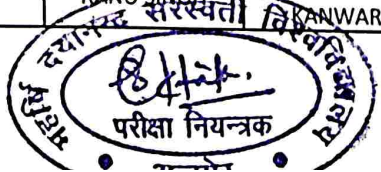 KANWAR
महर्षि दयानन्द सरस्वती विश्वविद्यालय
परीक्षा नियन्त्रक
अजमेर